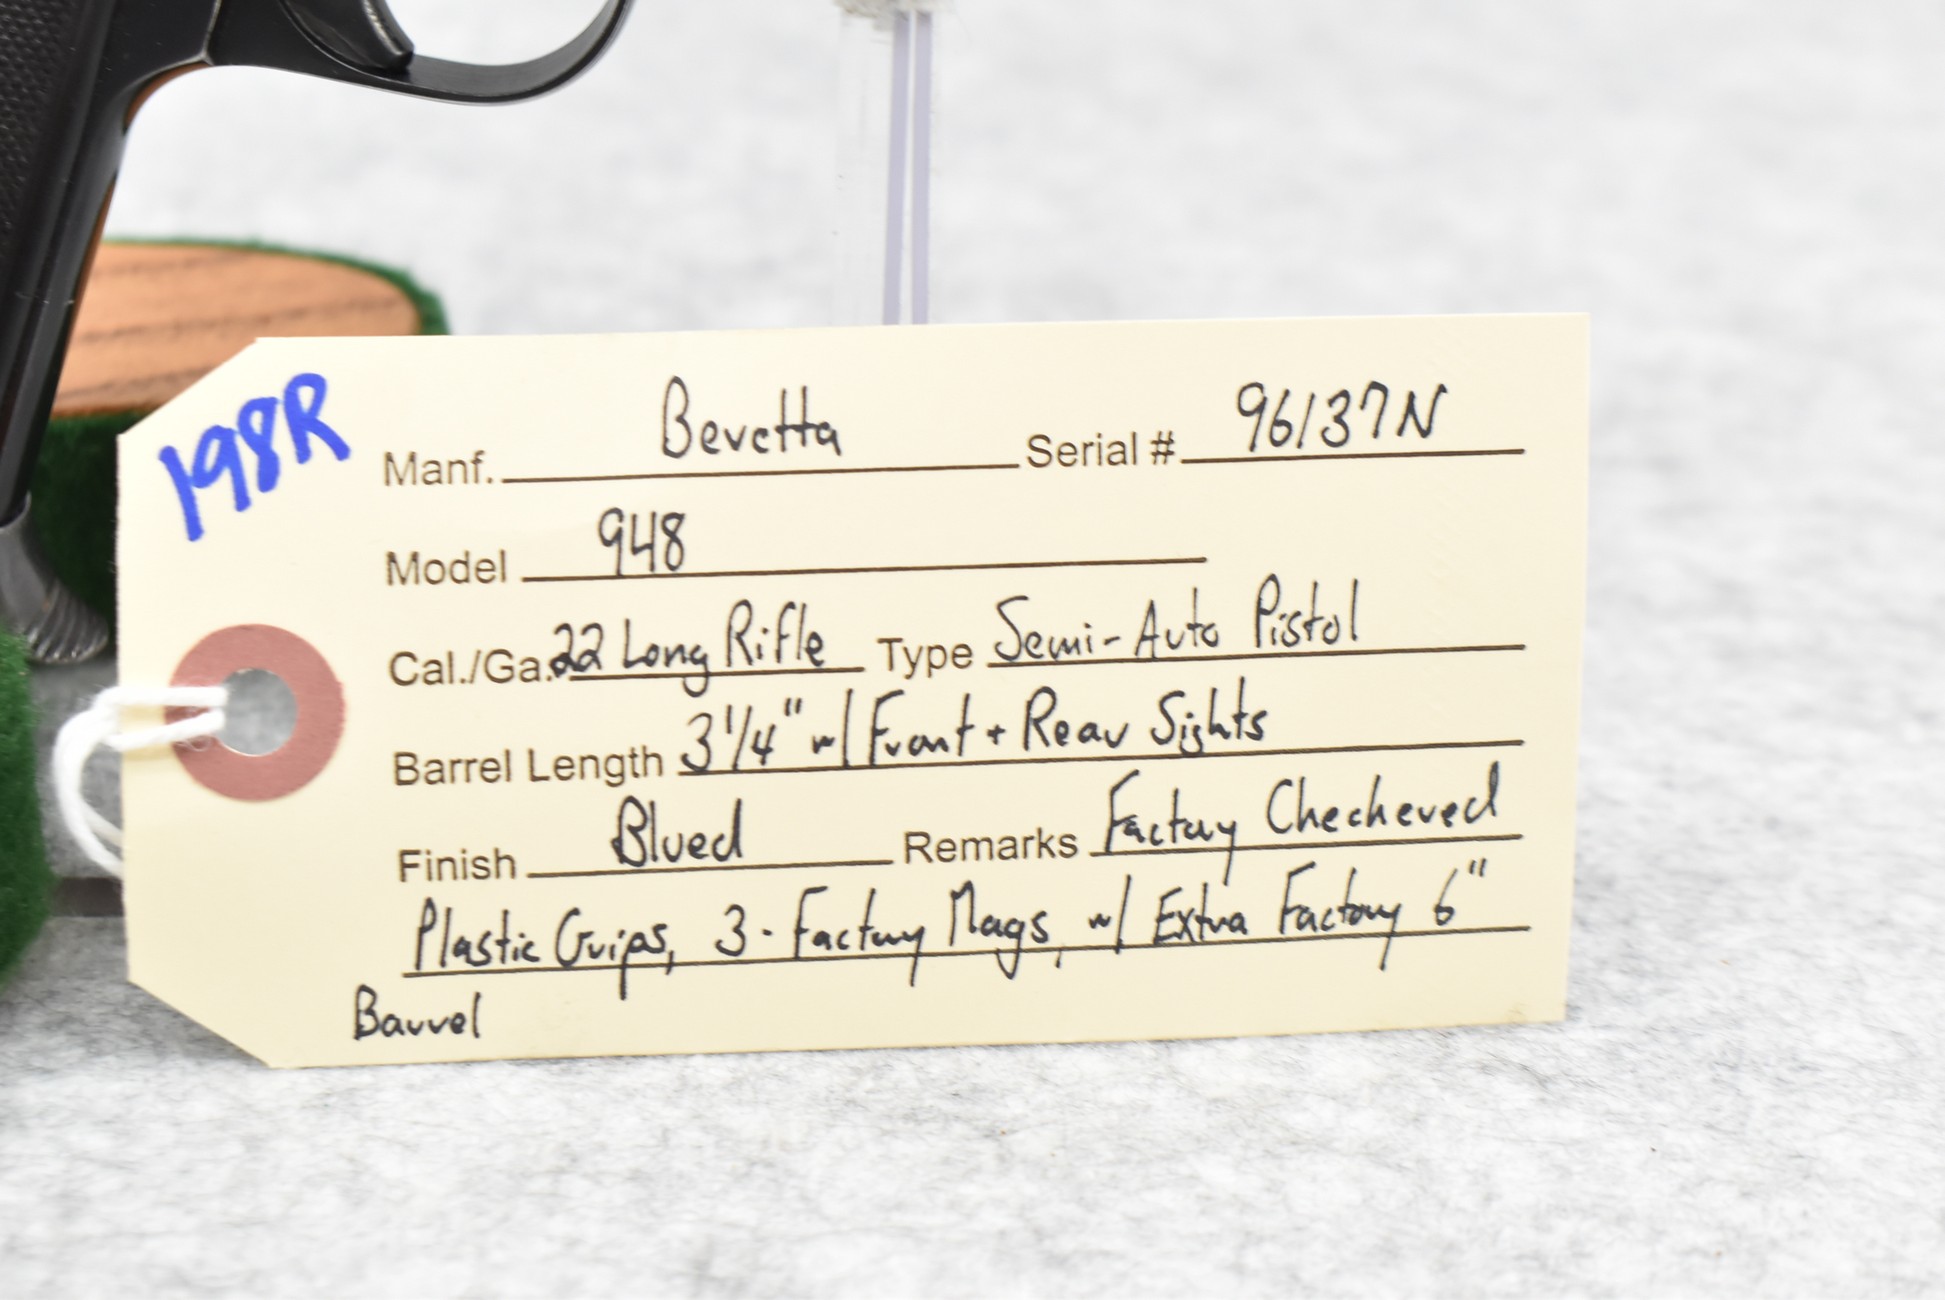 198R
Manf. Beretta Serial # 96137N
Model 948
Cal./Ga. 22 Long Rifle Type Semi-Auto Pistol
Barrel Length 3 1/4" w/ Front + Rear Sights
Finish Blued Remarks Factory Checkered
Plastic Grips, 3-Factory Mags, w/ Extra Factory 6"
Barrel